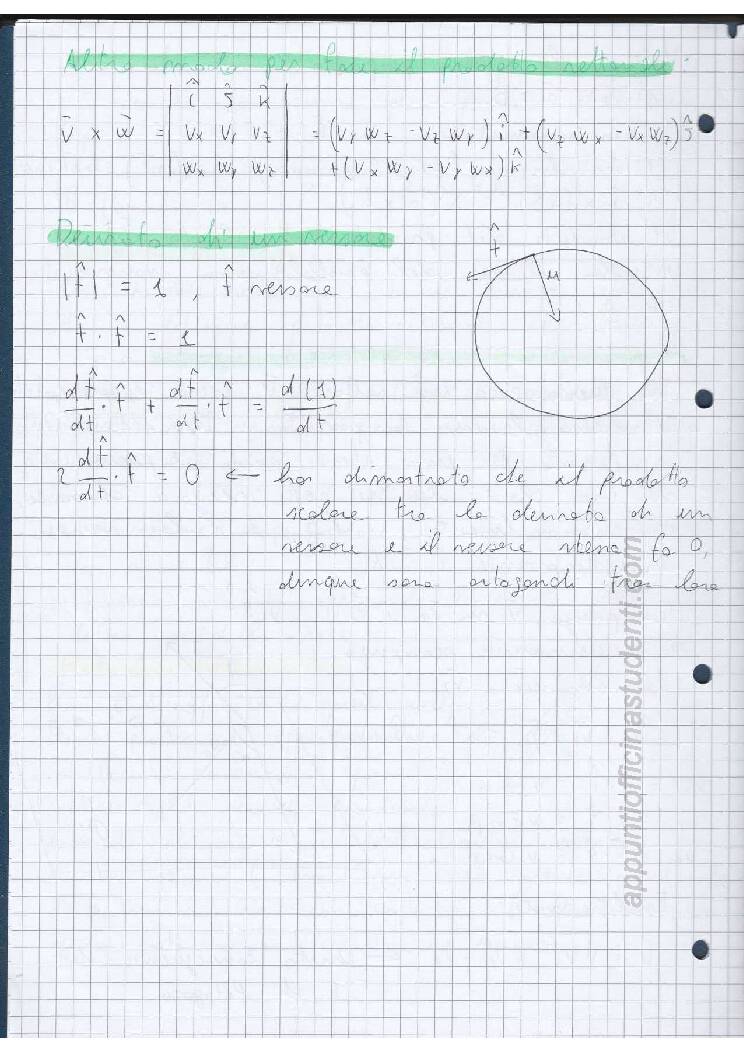 Altro modo per fare il prodotto vettoriale:
v⃗ × w⃗ = | î ĵ k̂ |
| vx vy vz | = (vy wz - vz wy) î + (vz wx - vx wz) ĵ
| wx wy wz | + (vx wy - vy wx) k̂
Derivata di un versore
t̂
|t̂| = 1 , t̂ versore
u
t̂ · t̂ = 1
dt̂/dt · t̂ + dt̂/dt · t̂ = d(1)/dt
2 dt̂/dt · t̂ = 0 ← ho dimostrato che il prodotto
scalare tra la derivata di un
versore e il versore stesso fa 0,
dunque sono ortogonali tra loro
appuntiofficinastudenti.com